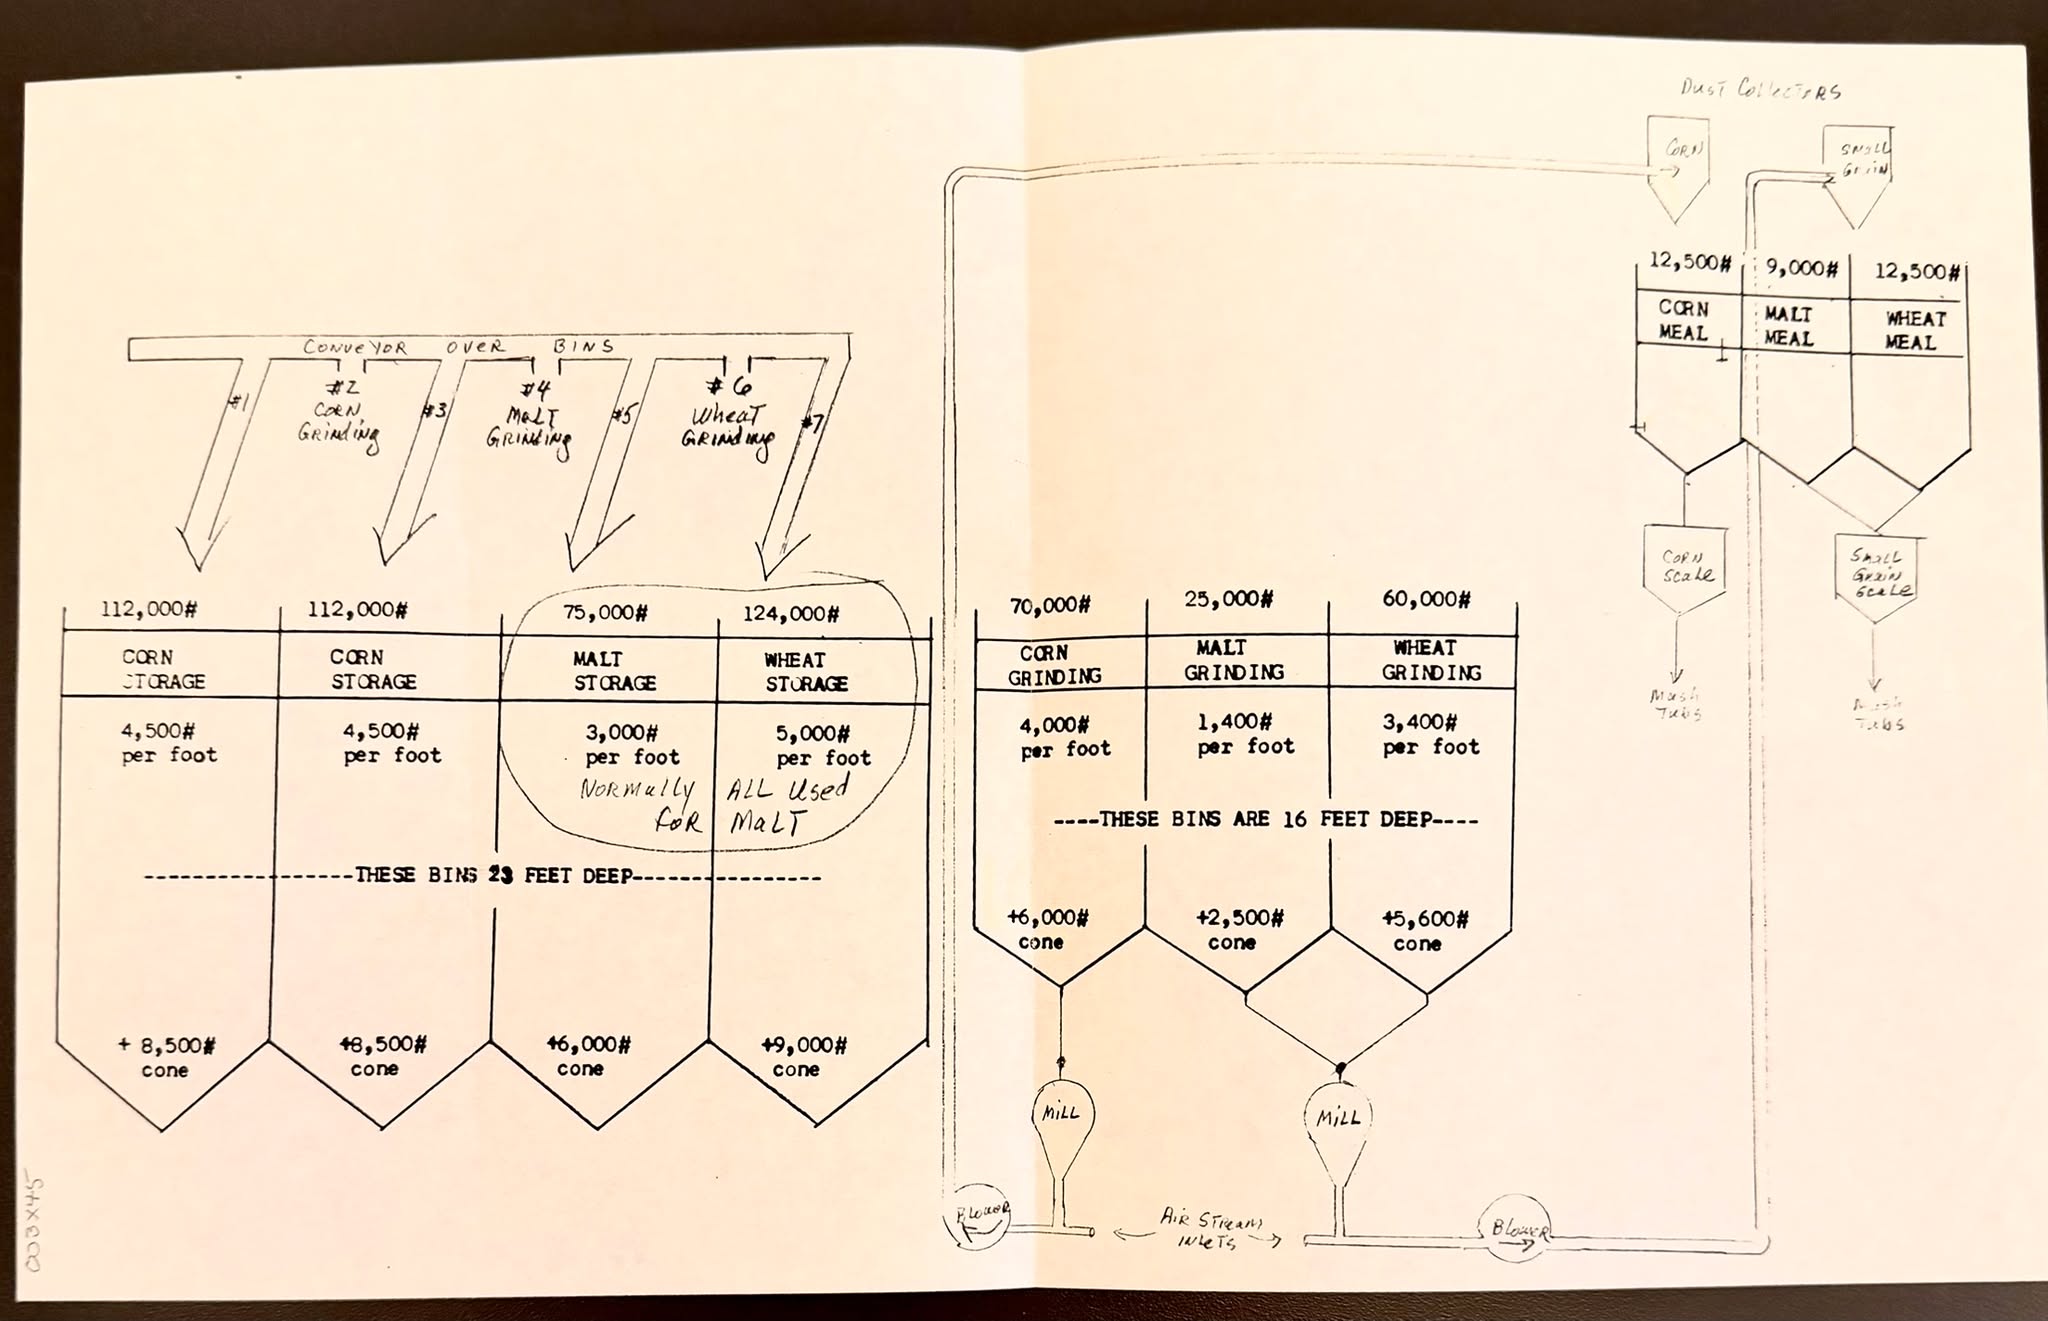 DUST COLLECTORS
CORN
SMALL
GRAIN
12,500#
9,000#
12,500#
CORN
MEAL
MALT
MEAL
WHEAT
MEAL
CONVEYOR OVER BINS
#1
#2
CORN
GRINDING
#3
#4
MALT
GRINDING
#5
#6
WHEAT
GRINDING
#7
CORN
SCALE
SMALL
GRAIN
SCALE
MASH
TUBS
MASH
TUBS
112,000#
CORN
STORAGE
4,500#
per foot
+ 8,500#
cone
112,000#
CORN
STORAGE
4,500#
per foot
+8,500#
cone
75,000#
MALT
STORAGE
3,000#
per foot
+6,000#
cone
124,000#
WHEAT
STORAGE
5,000#
per foot
+9,000#
cone
NORMALLY ALL USED
FOR MALT
------------------THESE BINS 23 FEET DEEP----------------
70,000#
CORN
GRINDING
4,000#
per foot
+6,000#
cone
25,000#
MALT
GRINDING
1,400#
per foot
+2,500#
cone
60,000#
WHEAT
GRINDING
3,400#
per foot
+5,600#
cone
----THESE BINS ARE 16 FEET DEEP----
MILL
MILL
BLOWER
AIR STREAM
INLETS
BLOWER
003X45